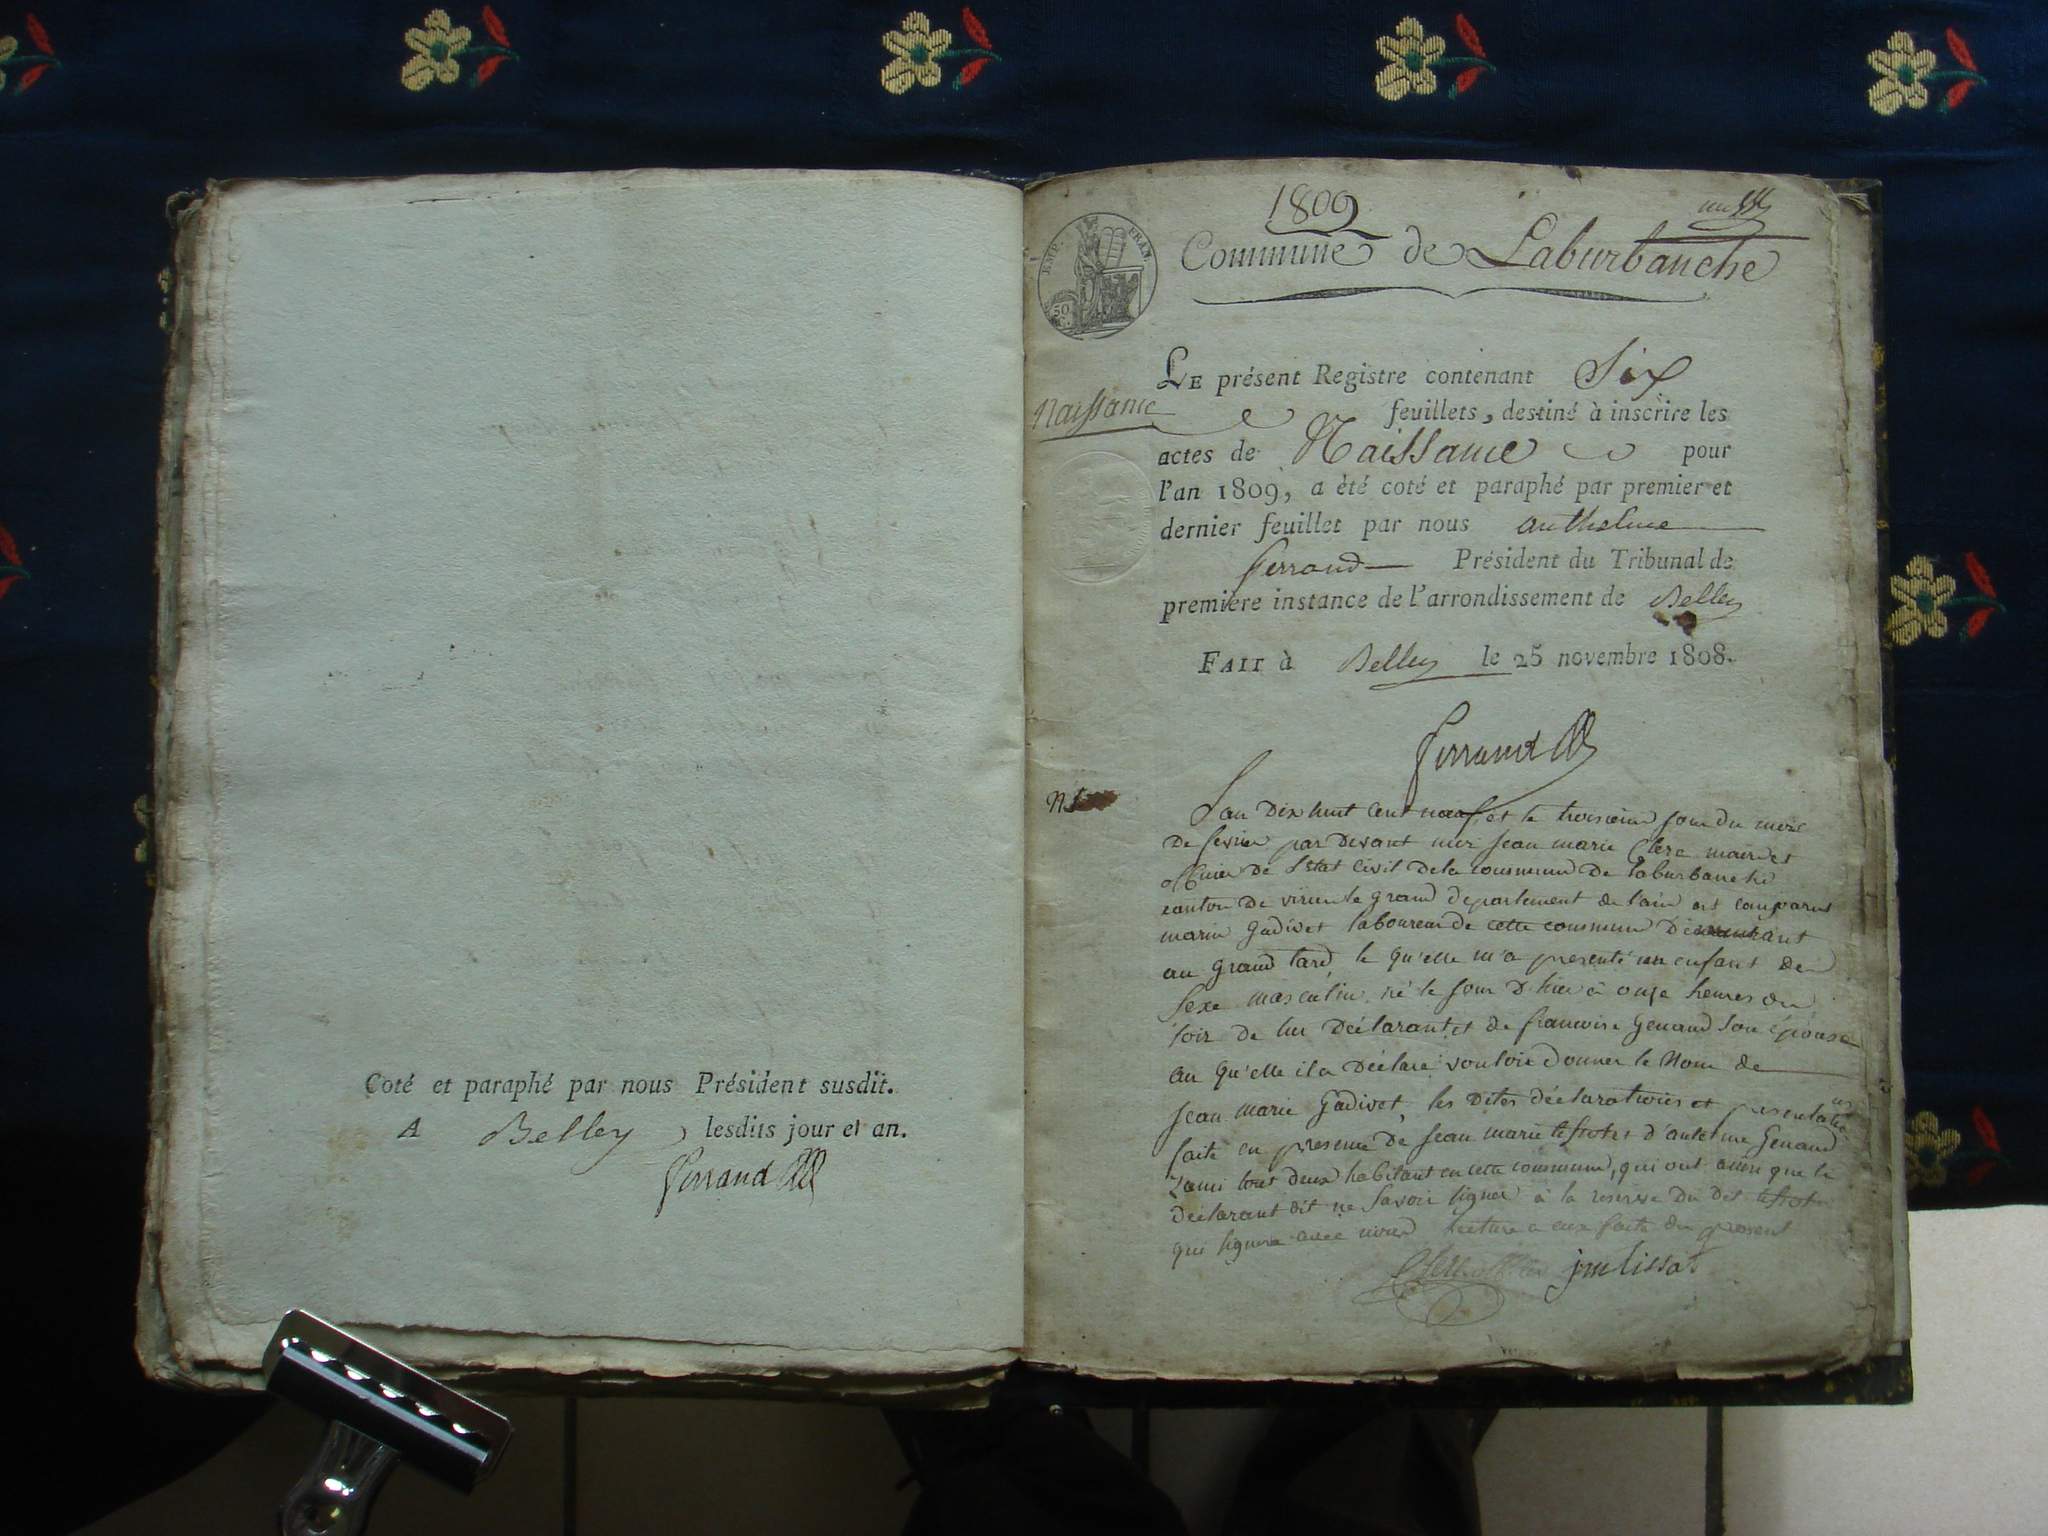 Coté et paraphé par nous Président susdit.
A Belley, lesdits jour et an.
Ferrand
1809
EMP. FRAN.
50 C.
Commune de Laburbanche
LE présent Registre contenant Six
Naissance
feuillets, destiné à inscrire les
actes de Naissance pour
l'an 1809, a été coté et paraphé par premier et
dernier feuillet par nous anthelme
ferrand Président du Tribunal de
première instance de l'arrondissement de Belley
FAIT à Belley le 25 novembre 1808.
ferrand
L'an Dix huit cent noeuf et le troisieme jour du mois
De fevrier par Devant nous jean marie Clerc maire et
officier De l'Etat Civil De la commune De laburbanche
canton De virieu le grand Departement de l'ain est comparut
marin gudivet laboureur de cette commune
au grand tard, le qu'elle m'a presenté un enfant De
Sexe masculin né le jour D'hier à onze heures du
soir De lui Déclarant et de francoise genand Son épouse
au qu'elle il a Déclaré vouloir donner le Nom de
jean marie gudivet, les Dites déclarations et presentations
faite en presence De jean marie et d'antelme genand
tout deux habitant en cette commune, qui ont ainsi que le
Déclarant dit ne Savoir signer à la reserve Du Dit
qui signera avec nous lecture a eux faite du present
jm tissot